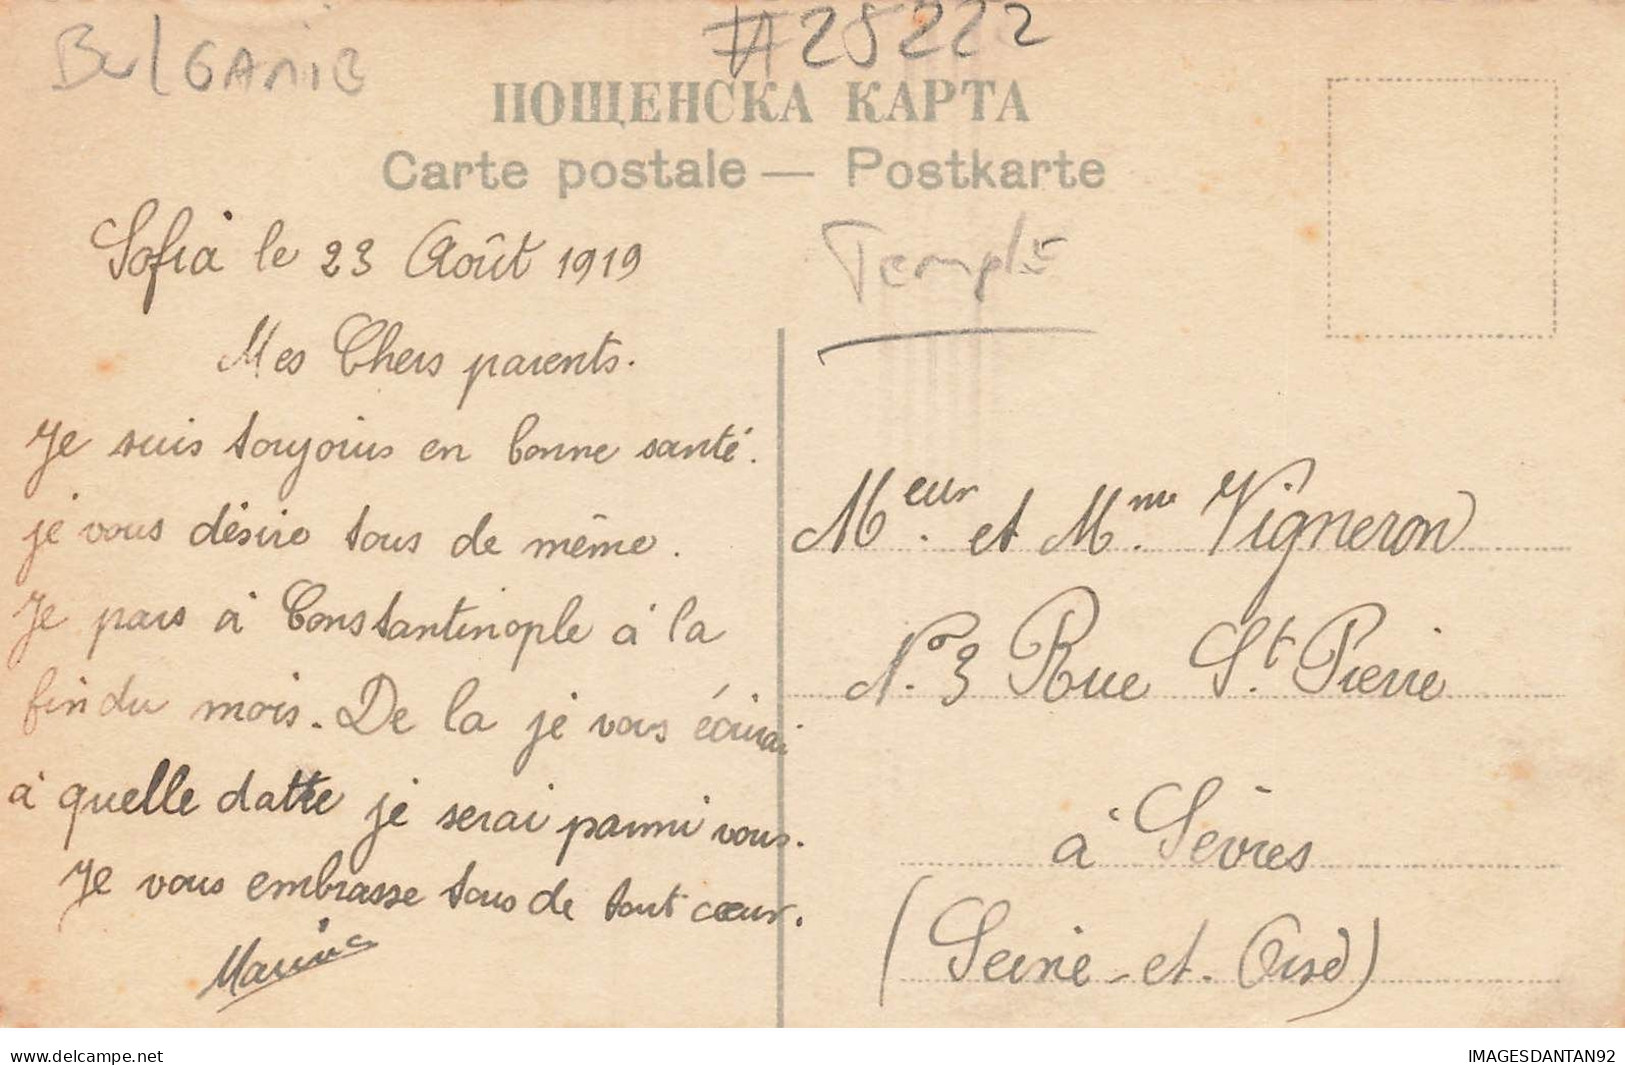 BulGAniE
#A25222
ПОЩЕНСКА КАРТА
Carte postale — Postkarte
Sofia le 23 Août 1919
Templ
Mes Chers parents.
Je suis toujours en bonne santé.
je vous désire tous de même.
Je pars à Constantinople à la
fin du mois. De la je vous écrirai
à quelle datte je serai parmi vous.
Je vous embrasse tous de tout cœur.
Meur. et Mme. Vigneron
No. 3 Rue St. Pierre
à Sèvres
(Seine-et-Oise)
delcampe.net
IMAGESDANTAN92